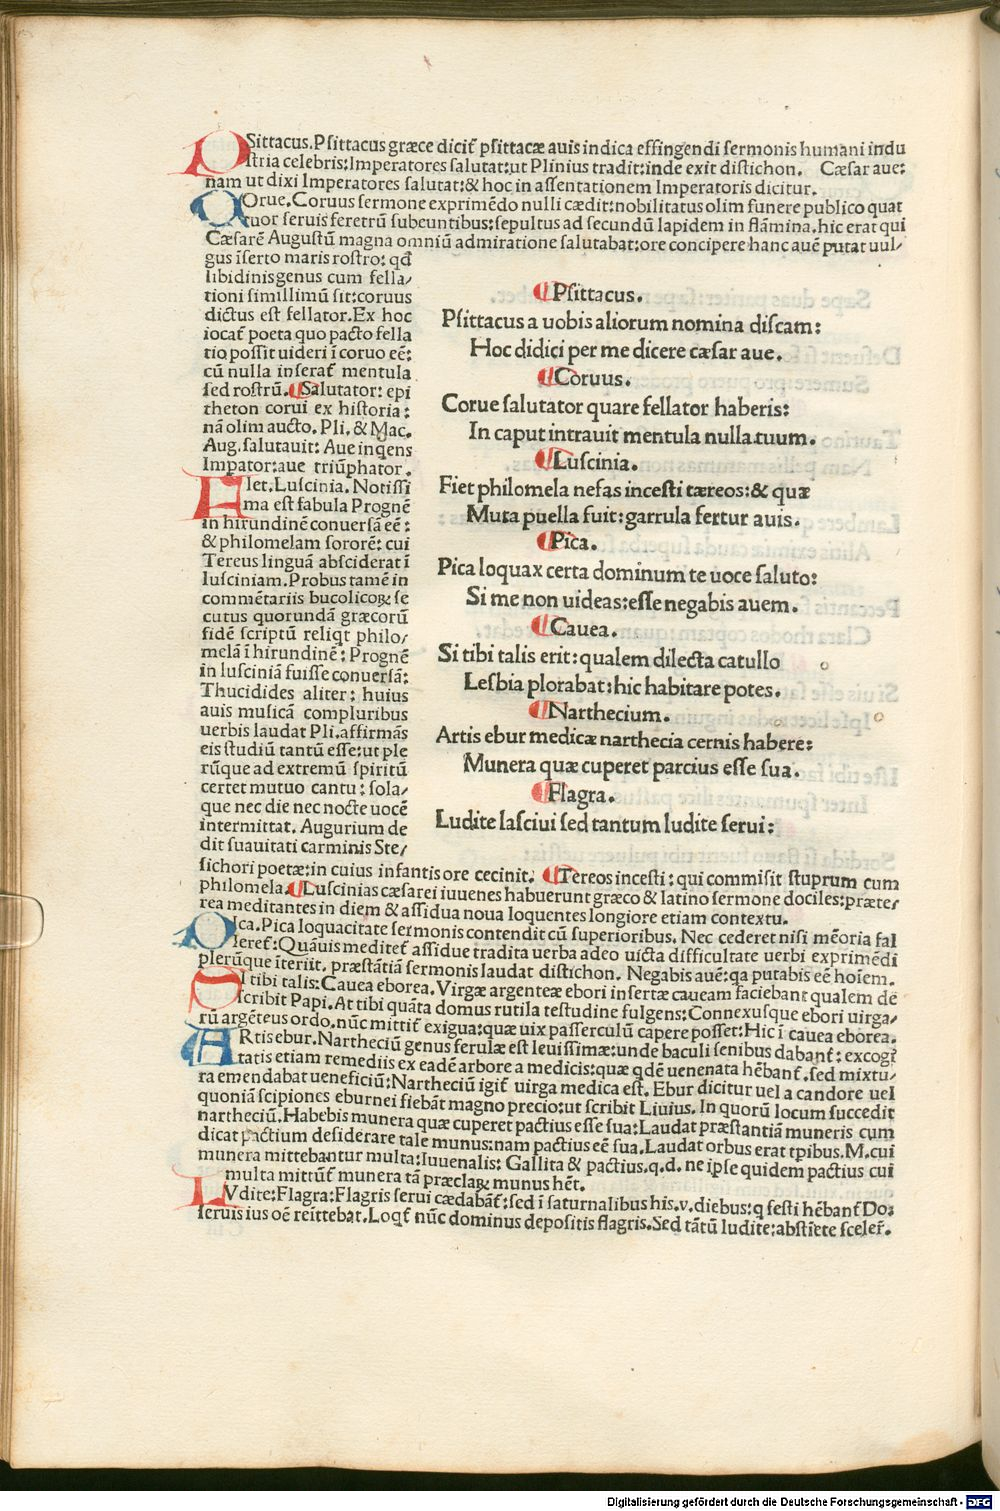 PSittacus. Psittacus græce dicit᷑ psittacæ auis indica effingendi sermonis humani indu
stria celebris: Imperatores salutat: ut Plinius tradit: inde exit distichon. Cæsar aue:
nam ut dixi Imperatores salutat: & hoc in assentationem Imperatoris dicitur.
COrue. Coruus sermone exprimēdo nulli cædit: nobilitatus olim funere publico quat
tuor seruis feretrū subeuntibus: sepultus ad secundū lapidem in flāmina. hic erat qui
Cæsarē Augustū magna omniū admiratione salutabat: ore concipere hanc auē putat uul/
gus īserto maris rostro: qd̄
libidinis genus cum fella/
tioni simillimū sit: coruus
dictus est fellator. Ex hoc
iocat᷑ poeta quo pacto fella
tio possit uideri ī coruo eē:
cū nulla inserat᷑ mentula
sed rostrū. Salutator: epi
theton corui ex historia:
nā olim aucto. Pli. & Mac.
Aug. salutauit: Aue inqens
Impator: aue triūphator.
FLet. Luscinia. Notissi
ma est fabula Prognē
in hirundinē conuersā eē:
& philomelam sororē: cui
Tereus linguā absciderat ī
lusciniam. Probus tamē in
commētariis bucolicoꝝ se
cutus quorundā græcorū
fidē scriptū reliqt philo/
melā ī hirundinē: Prognē
in lusciniā fuisse conuersā:
Thucidides aliter: huius
auis musicā compluribus
uerbis laudat Pli. affirmās
eis studiū tantū esse: ut ple
rūque ad extremū spiritū
certet mutuo cantu: sola/
que nec die nec nocte uocē
intermittat. Augurium de
dit suauitati carminis Ste/
Psittacus.
Psittacus a uobis aliorum nomina discam:
Hoc didici per me dicere cæsar aue.
Coruus.
Corue salutator quare fellator haberis:
In caput intrauit mentula nulla tuum.
Luscinia.
Flet philomela nefas incesti tæreos: & quæ
Muta puella fuit: garrula fertur auis.
Pica.
Pica loquax certa dominum te uoce saluto:
Si me non uideas: esse negabis auem.
Cauea.
Si tibi talis erit: qualem dilecta catullo
Lesbia plorabat: hic habitare potes.
Narthecium.
Artis ebur medicæ narthecia cernis habere:
Munera quæ cuperet parcius esse sua.
Flagra.
Ludite lasciui sed tantum ludite serui:
sichori poetæ: in cuius infantis ore cecinit. Tereos incesti: qui commisit stuprum cum
philomela. Luscinias cæsarei iuuenes habuerunt græco & latino sermone dociles: præte/
rea meditantes in diem & assidua noua loquentes longiore etiam contextu.
PIca. Pica loquacitate sermonis contendit cū superioribus. Nec cederet nisi mēoria fal
leret᷑: Quāuis meditet᷑ assidue tradita uerba adeo uicta difficultate uerbi exprimēdi
plerūque īteriit. præstātiā sermonis laudat distichon. Negabis auē: qa putabis eē hoīem.
SI tibi talis: Cauea eborea. Virgæ argenteæ ebori insertæ caueam faciebant qualem de
scribit Papi. At tibi quāta domus rutila testudine fulgens: Connexusque ebori uirga/
rū argēteus ordo. nūc mittit᷑ exigua: quæ uix passerculū capere posset: Hic ī cauea eborea.
ARtis ebur. Nartheciū genus ferulæ est leuissimæ: unde baculi senibus dabant᷑: excogi
tatis etiam remediis ex eadē arbore a medicis: quæ qdē uenenata hēbant᷑. sed mixtu/
ra emendabat ueneficiū: Nartheciū igit᷑ uirga medica est. Ebur dicitur uel a candore uel
quoniā scipiones eburnei fiebāt magno precio: ut scribit Liuius. In quorū locum succedit
nartheciū. Habebis munera quæ cuperet pactius esse sua: Laudat præstantiā muneris cum
dicat pactium desiderare tale munus: nam pactius eē sua. Laudat orbus erat tpibus. M. cui
munera mittebantur multa: Iuuenalis: Gallita & pactius. q. d. ne ipse quidem pactius cui
multa mittūt᷑ munera tā præclaꝝ munus hēt.
LVdite: Flagra: Flagris serui cædabāt᷑: sed ī saturnalibus his. v. diebus: q festi hēbant᷑ Do:
seruis ius oē reīttebat. Loqt᷑ nūc dominus depositis flagris. Sed tātū ludite: abstiēte sceler᷑.
Digitalisierung gefördert durch die Deutsche Forschungsgemeinschaft - DFG